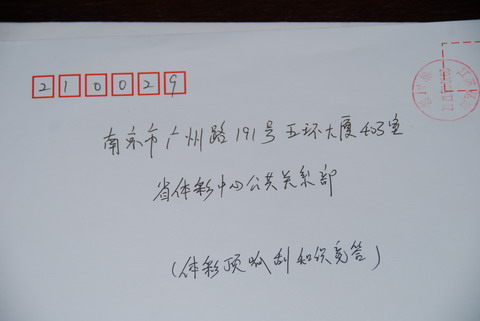 210029
南京市广州路191号五环大厦403室
省体彩中心公共关系部
(体彩顶呱刮知识竞答)